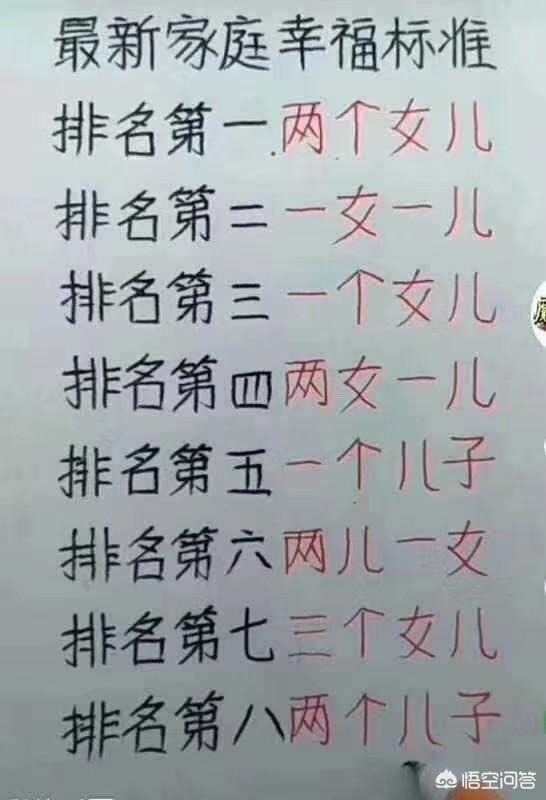 最新家庭幸福标准
排名第一两个女儿
排名第二一女一儿
排名第三一个女儿
排名第四两女一儿
排名第五一个儿子
排名第六两儿一女
排名第七三个女儿
排名第八两个儿子
悟空问答